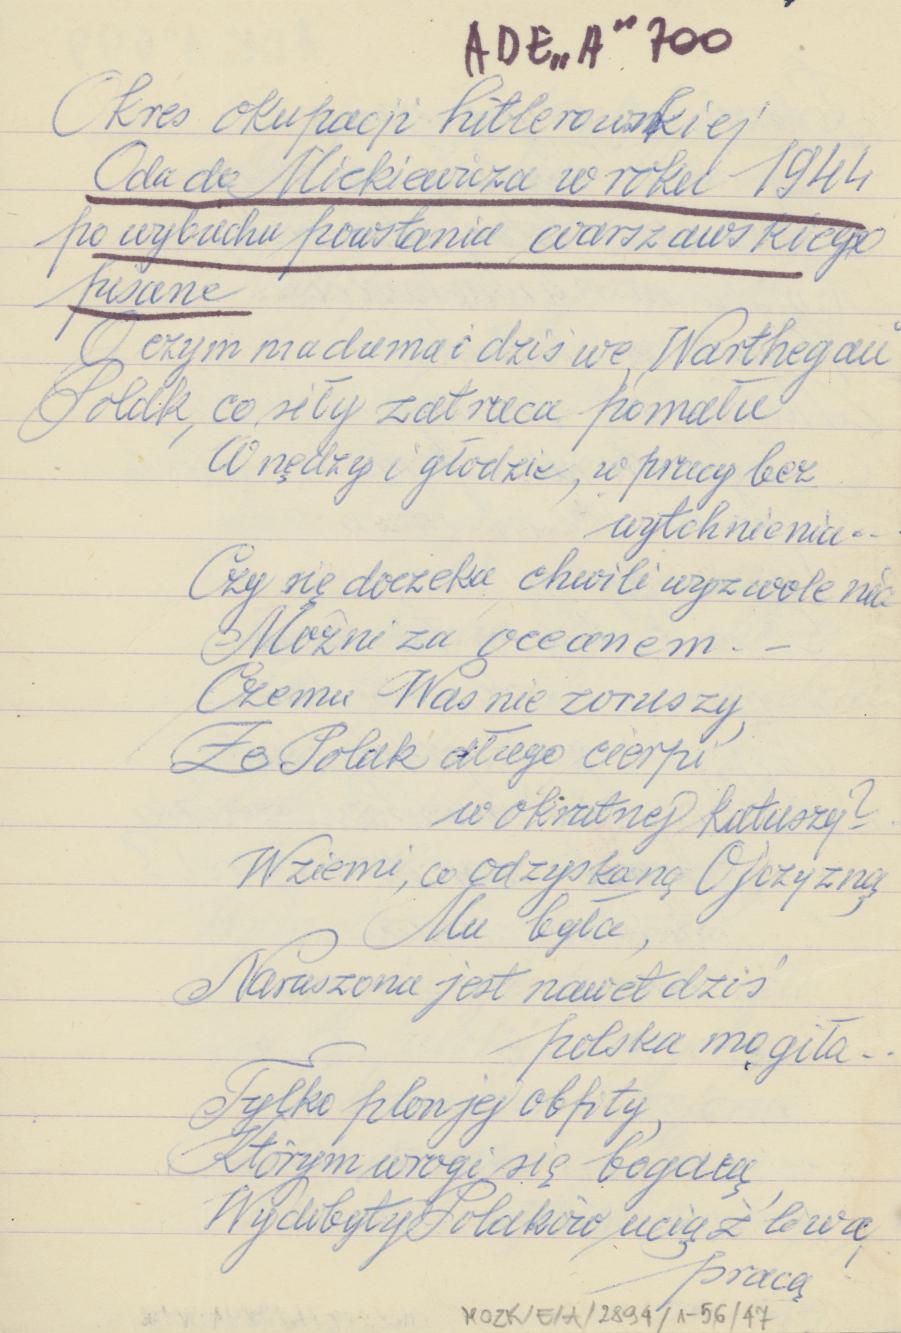 ADE „A" 700
Okres okupacji hitlerowskiej
Oda do Mickiewicza w roku 1944
po wybuchu powstania warszawskiego
pisane
O czym ma dumać dziś we Warthegau
Polak, co siły zatraca pomału
W nędzy i głodzie, w pracy bez
wytchnienia--
Czy się doczeka chwili wyzwolenia
Możni za oceanem. --
Czemu Was nie wzruszy,
Że Polak długo cierpi
w okrutnej katuszy?
W ziemi, co odzyskaną Ojczyzną
Mu była,
Naruszona jest nawet dziś
polska mogiła--
Tylko plon jej obfity,
Którym wrogi się bogacą,
Wydobyty Polaków uciążliwą
pracą
MOZK/E/A/2894/1-56/47